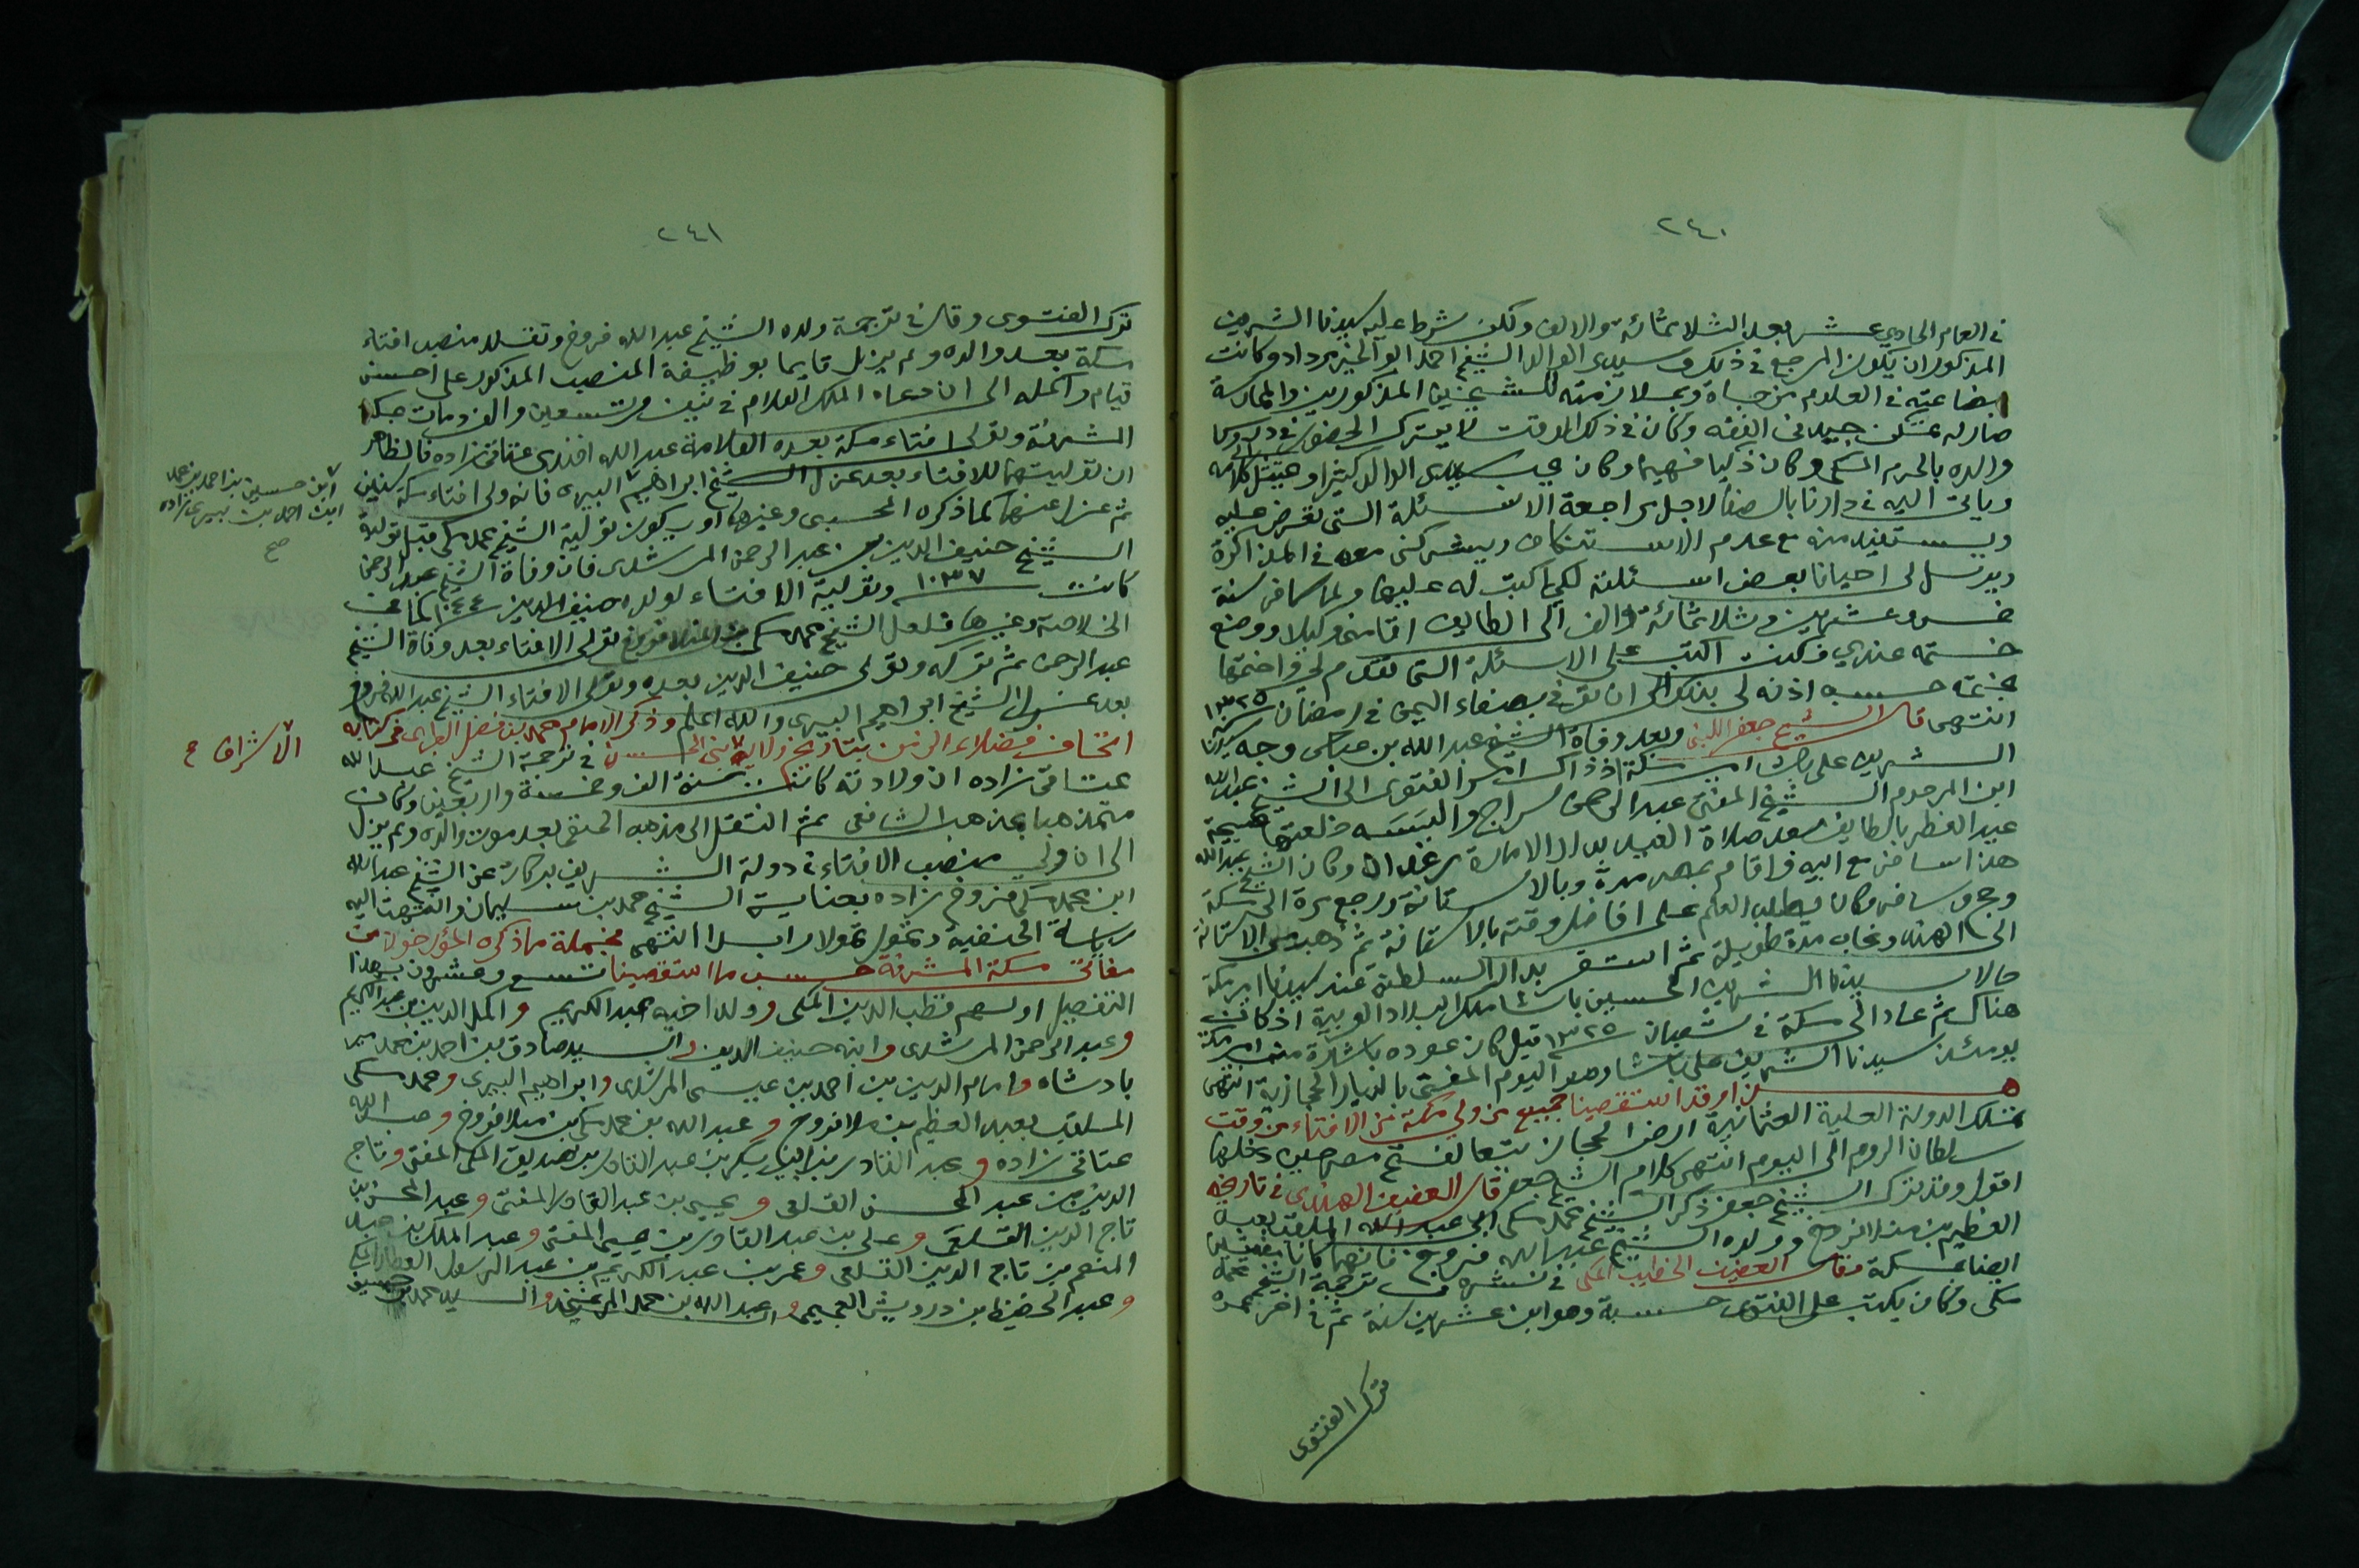 ٢٤٠
في العام الحادي عشر بعد الثلاثمائة والالف ولكن شرط عليه سيدنا الشريف
المذكور ان يكون المرجع في ذلك سيدي الوالد الشيخ احمد ابو الخير مرداد وكانت
بضاعته في العلوم مزجاة وبملازمته للشيخين المذكورين والممارسة
صار له تمكن جيد في الفقه وكان في ذلك الوقت لا يترك الحضور في دروس
والده بالحرم المكي وكان ذكيا فهيما وكان يحب سيدي الوالد كثيرا ويمتثل كلامه
وياتي اليه في دارنا بالصفا لاجل مراجعة الاسئلة التي تعرض عليه
ويستفيد منه مع عدم الاستنكاف ويشركني معه في المذاكرة
ويرسل لي احيانا بعض اسئلة لكي اكتب له عليها ولما سافر سنة
خمس وعشرين وثلاثمائة والف الى الطايف اقامني وكيلا ووضع
ختمه عندي فكنت اكتب على الاسئلة التي تقدم لي واختمها
بختمه حسب اذنه لي بذلك الى ان توفي بصنعاء اليمن في رمضان سنة ١٣٢٥
انتهى قال الشيخ جعفر اللبني وبعد وفاة الشيخ عبد الله بن عباس وجه سيدنا
الشريف علي باشا امير مكة اذ ذاك امر الفتوى الى الشيخ عبد الله
ابن المرحوم الشيخ المفتي عبد الرحمن سراج والبسه خلعتها صبيحة
عيد الفطر بالطايف بعد صلاة العيد بدار الامارة وكان الشيخ عبد الله
هذا سافر مع ابيه واقام بمصر مدة وبالاستانة ورجع مرة الى مكة
وحج وسافر وكان يطلب العلم على افاضل وقته بالاستانة ثم ذهب من الاستانة
الى الهند وغاب مدة طويلة ثم استقر بدار السلطنة عند سيدنا امير مكة
حالا سيدنا الشريف الحسين باشا ملك البلاد العربية اذ كان
هناك ثم عاد الى مكة في شعبان ١٣٢٥ قيل كان عوده باشارة من امير مكة
يومئذ سيدنا الشريف علي باشا وهو اليوم المفتي بالديار الحجازية انتهى
هذا وقد استقصينا جميع من ولي مكة من الافتاء من وقت
تملك الدولة العلية العثمانية ارض الحجاز تبعا لفتح مصر حين دخلها
سلطان الروم الى اليوم انتهى كلام الشيخ جعفر قال العفيف الهندي في تاريخه
اقول وقد ترك الشيخ جعفر ذكر الشيخ محمد مكي ابي عبد الله الملقب بعبد
العظيم بن منلا فروخ وولده الشيخ عبد الله فروخ فانهما كانا مفتيين
ايضا بمكة وقال العفيف الخطيب المكي في نشره في ترجمة الشيخ محمد
مكي وكان يكتب على الفتوى حسبة وهو ابن عشرين سنة ثم في اخر عمره
ترك الفتوى
٢٤١
ترك الفتوى وقال في ترجمة ولده الشيخ عبد الله فروخ وتقلد منصب افتاء
مكة بعد والده ولم يزل قايما بوظيفة المنصب المذكور على احسن
قيام واكمله الى ان دعاه الملك العلام في نيف وتسعين والف ومات بمكة
المشرفة وتولى افتاء مكة بعده العلامة عبد الله افندي عتاقي زاده فالظاهر
ان توليتهما للافتاء بعد عزل الشيخ ابراهيم البيري فانه ولي افتاء مكة سنين
ثم عزل عنها كما ذكره المحبي وغيره او يكون تولية الشيخ محمد مكي قبل تولية
الشيخ حنيف الدين بن عبد الرحمن المرشدي فان وفاة الشيخ عبد الرحمن
كانت سنة ١٠٣٧ وتولية الافتاء لولده حنيف الدين سنة ١٠٤٤ كما في
الخلاصة وغيرها فلعل الشيخ محمد مكي بن المنلا فروخ تولى الافتاء بعد وفاة الشيخ
عبد الرحمن ثم تركه وتولى حنيف الدين بعده وتولى الافتاء الشيخ عبد الله فروخ
بعد عزل الشيخ ابراهيم البيري والله اعلم وذكر الامام محمد بن فضل الطبري في كتابه
اتحاف فضلاء الزمن بتاريخ ولاية بني الحسن في ترجمة الشيخ عبد الله
عتاقي زاده ان ولادته كانت سنة الف وخمسة واربعين وكان
متمذهبا بمذهب الشافعي ثم انتقل الى مذهب الحنفي بعد موت والده ولم يزل
الى ان ولي منصب الافتاء في دولة الشريف بركات عن الشيخ عبد الله
ابن محمد مكي فروخ زاده بعناية الشيخ محمد بن سليمان وانتهت اليه
رياسة الحنفية وتمول تمولا زايدا انتهى فجملة ما ذكره المؤرخون من
مفاتي مكة المشرفة حسب ما استقصينا تسع وعشرون بهذا
التفصيل اولهم قطب الدين المكي وولد اخيه عبد الكريم واكمل الدين بن عبد الكريم
وعبد الرحمن المرشدي وابنه حنيف الدين والسيد صادق بن احمد بن محمد مير
بادشاه وامام الدين بن احمد بن عيسى المرشدي وابراهيم البيري ومحمد مكي
الملقب بعبد العظيم بن ملا فروخ وعبد الله بن محمد مكي بن ملا فروخ وعبد الله
عتاقي زاده وعبد القادر بن ابي بكر بن عبد القادر بن صديق المكي المفتي وتاج
الدين بن عبد المحسن القلعي ويحيى بن عبد القادر المفتي وعبد المحسن بن
تاج الدين القلعي وعلي بن عبد القادر بن يحيى المفتي وعبد الملك بن عبد
المنعم بن تاج الدين القلعي وعمر بن عبد الكريم بن عبد الرسول العطار المكي
وعبد الحفيظ بن درويش العجيمي وعبد الله بن محمد الميرغني والسيد محمد بن حسين
ابن حسين بن احمد بن محمد
ابن احمد بن بيري زاده
صح
الاشراف